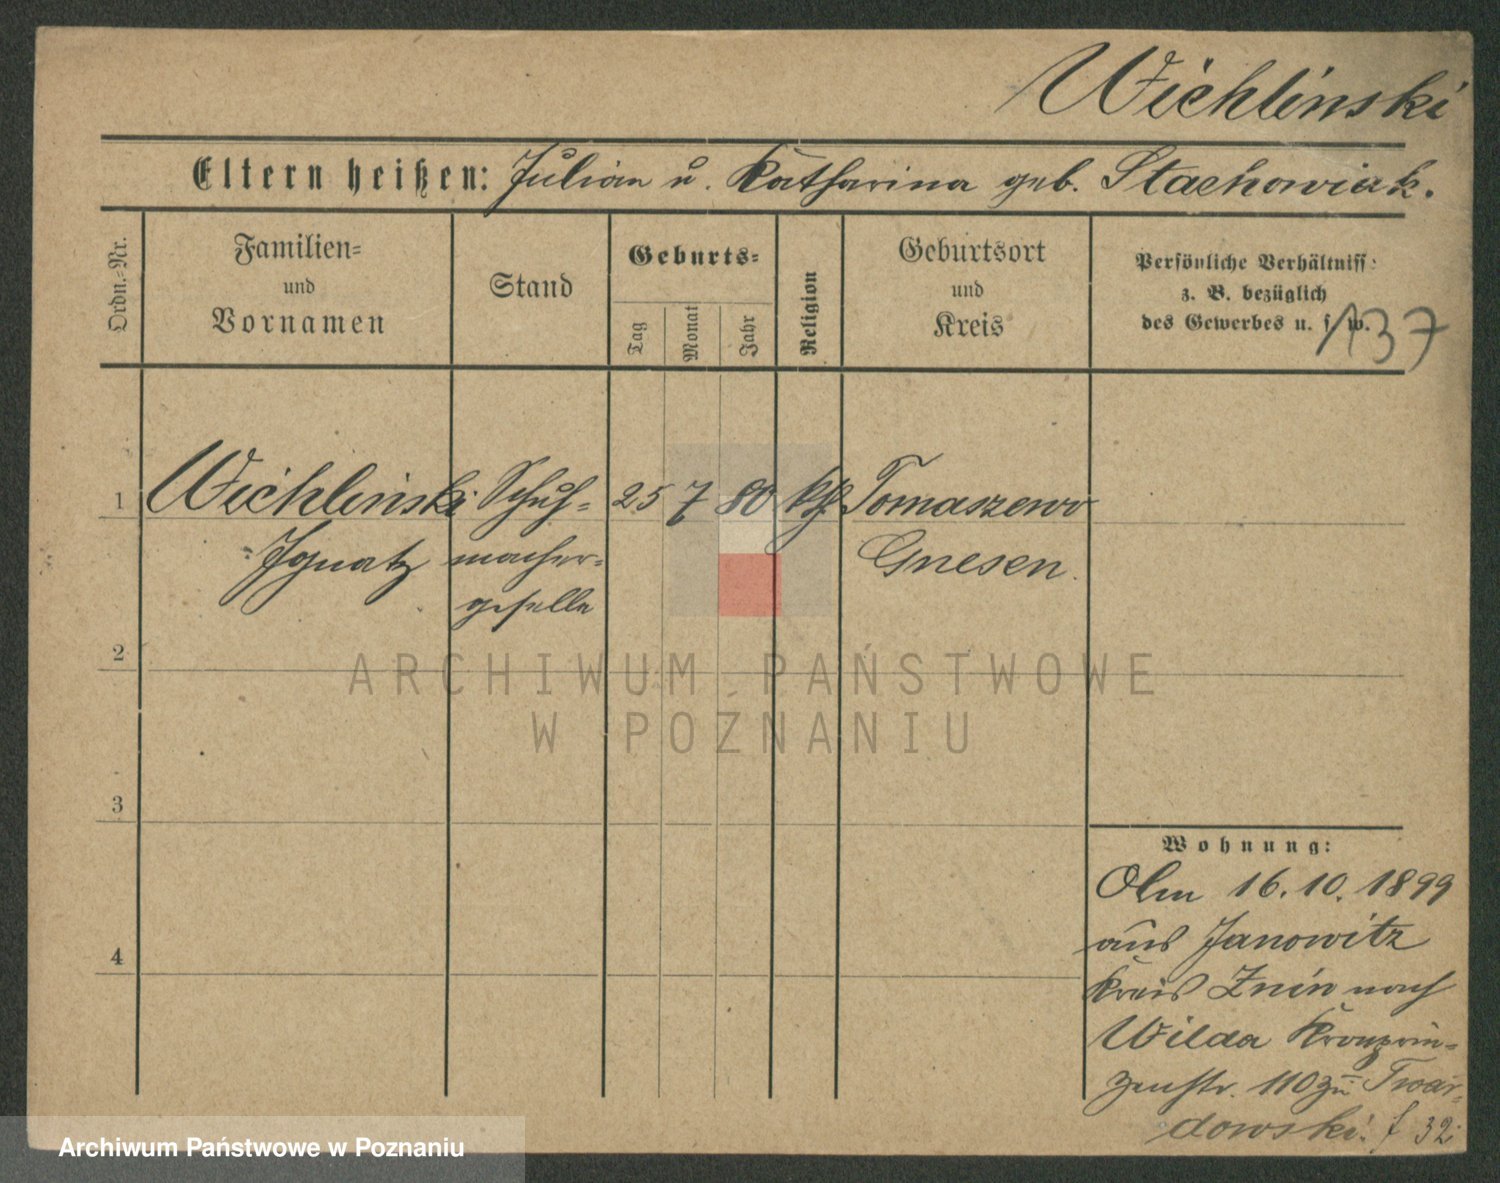 Wichlinski
Eltern heißen: Julian u. Katharina geb. Stachowiak.
Ordn.-Nr.
Familien-
und
Vornamen
Stand
Geburts-
Tag
Monat
Jahr
Religion
Geburtsort
und
Kreis
Persönliche Verhältniss:
z. B. bezüglich
des Gewerbes u. s. w.
137
1 Wichlinski Schuh- 25 7 80 kth Tomaszewo
Ignatz macher- Gnesen.
geselle
2
3
4
ARCHIWUM PAŃSTWOWE
W POZNANIU
Wohnung:
16.10.1899
aus Janowitz
Kreis Znin nach
Wilda Kronprin-
zenstr. 110 zu Twar-
dowski. f 32
Archiwum Państwowe w Poznaniu